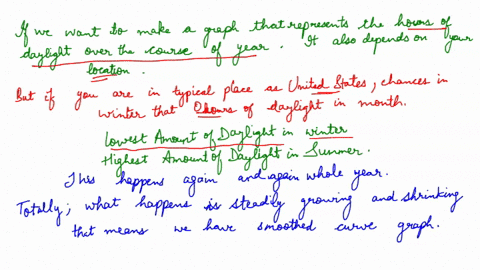 If we want to make a graph that represents the hours of
daylight over the course of year. It also depends on your
location.
But if you are in typical place as United States, chances in
winter that 8hours of daylight in month.
Lowest Amount of Daylight in winter
Highest Amount of Daylight in Summer.
This happens again and again whole year.
Totally, what happens is steadily growing and shrinking
that means we have smoothed curve graph.